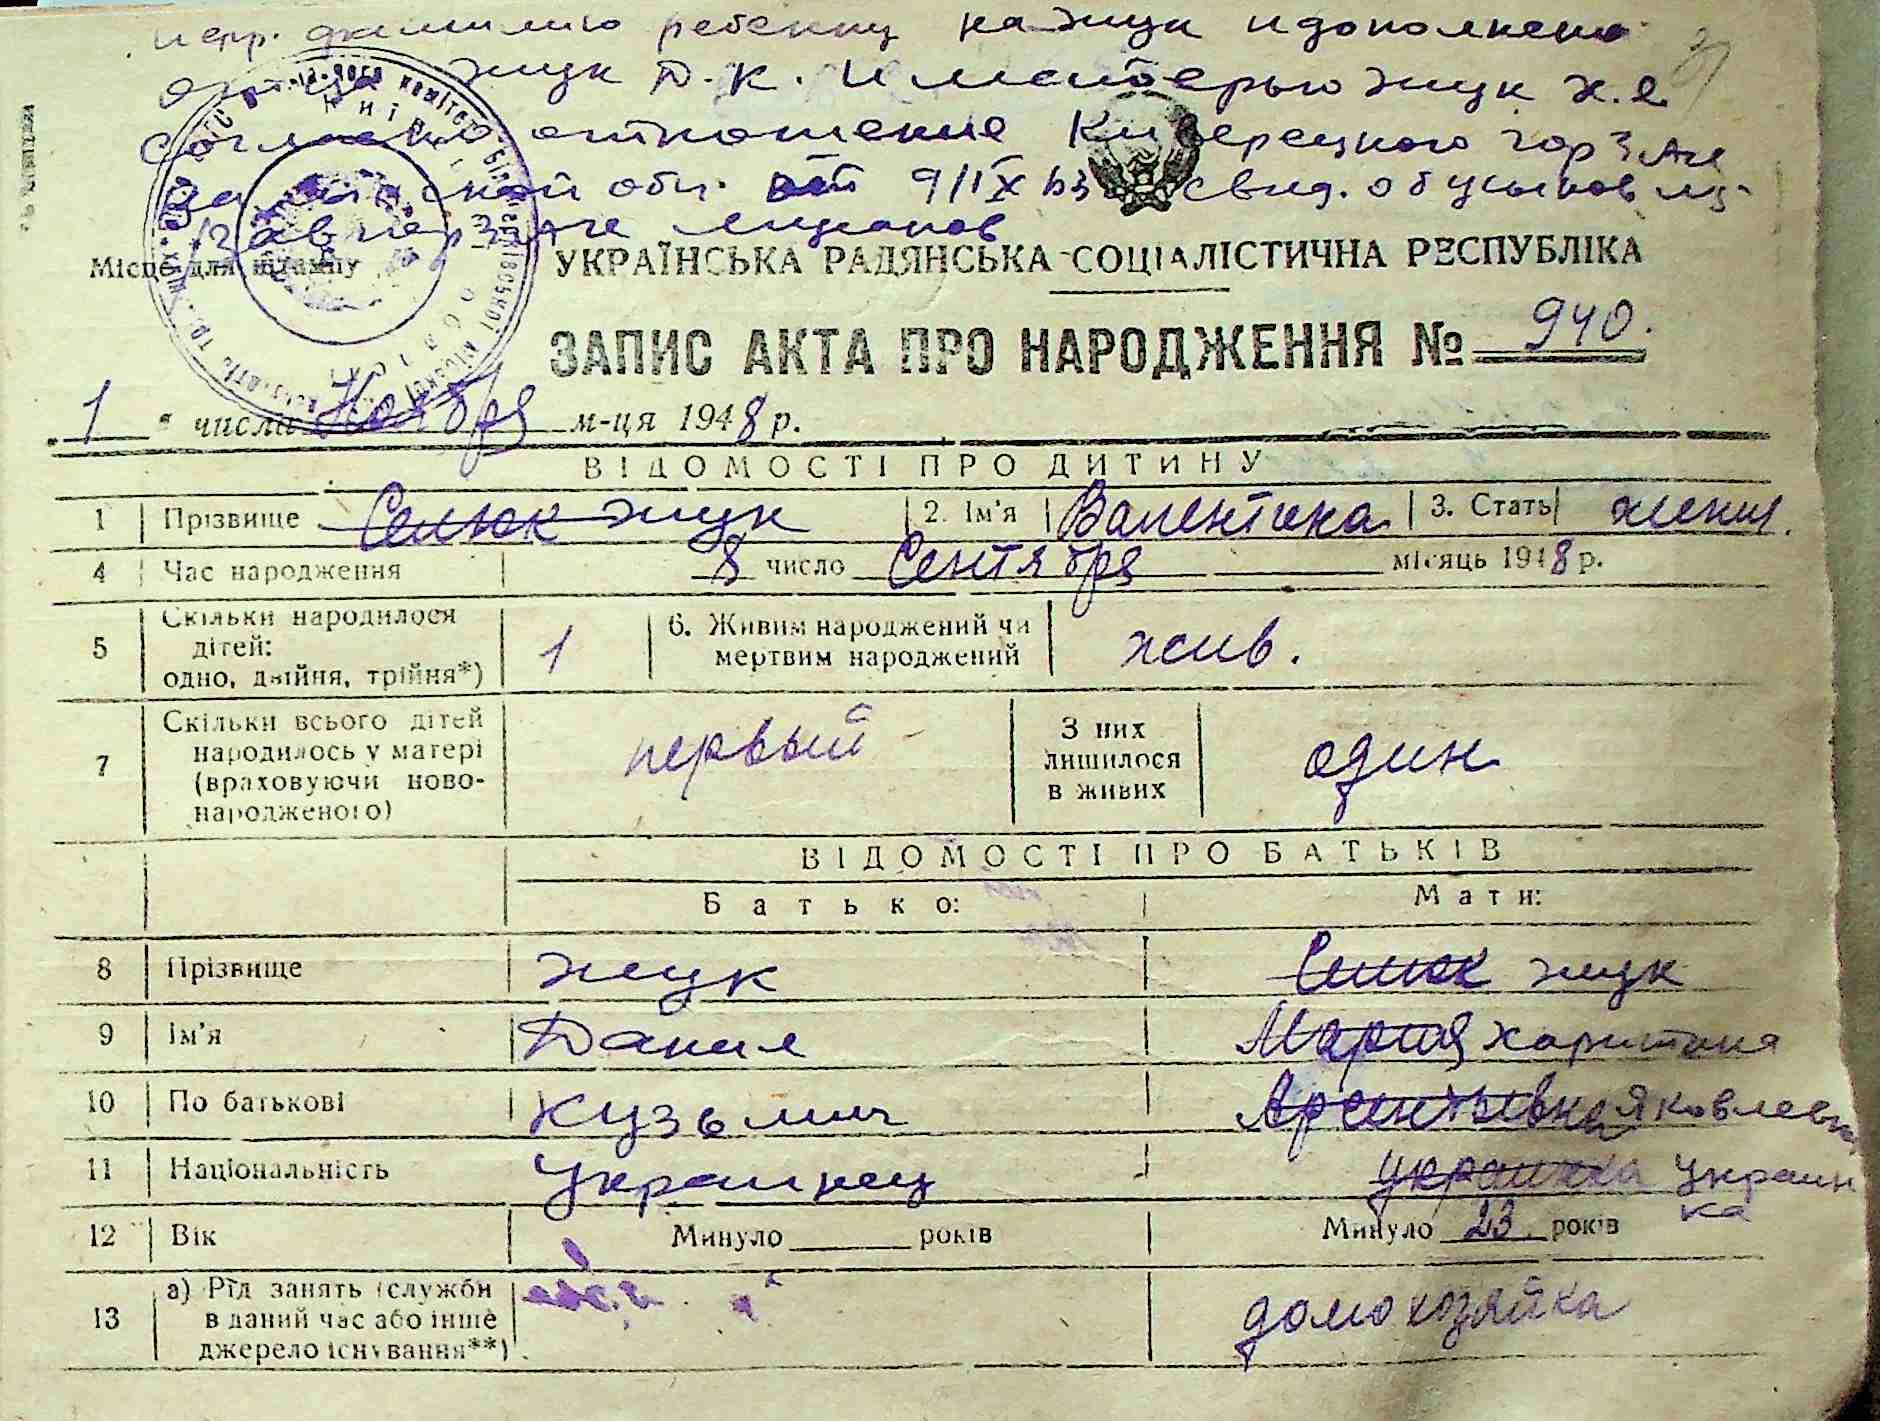 испр. фамилию ребенку на Жук и дополнено
отца Жук Д. К. и матерью Жук Х. Я.
согласно отношение Киверецкого горЗАГС
Волынской обл. от 9/IX 53 свид. об усынов
Завгор ЗАГС
Місце для штампу
УКРАЇНСЬКА РАДЯНСЬКА СОЦІАЛІСТИЧНА РЕСПУБЛІКА
ЗАПИС АКТА ПРО НАРОДЖЕННЯ № 940.
"1" числа Ноября м-ця 1948 р.
ВІДОМОСТІ ПРО ДИТИНУ
1 Прізвище Селюк Жук 2. Ім'я Валентина 3. Стать женск.
4 Час народження 8 число Сентября місяць 1948 р.
5 Скільки народилося дітей: одно, двійня, трійня*) 1 6. Живим народжений чи мертвим народжений жив.
7 Скільки всього дітей народилось у матері (враховуючи ново-народженого) первый З них лишилося в живих один
ВІДОМОСТІ ПРО БАТЬКІВ
Батько: Мати:
8 Прізвище Жук Селюк Жук
9 Ім'я Данил Мария Харитина
10 По батькові Кузьмич Арсентьевна Яковлевна
11 Національність Украинец Украинка Украинка
12 Вік Минуло років Минуло 23 років
13 а) Рід занять (служби в даний час або інше джерело існування**) домохозяйка